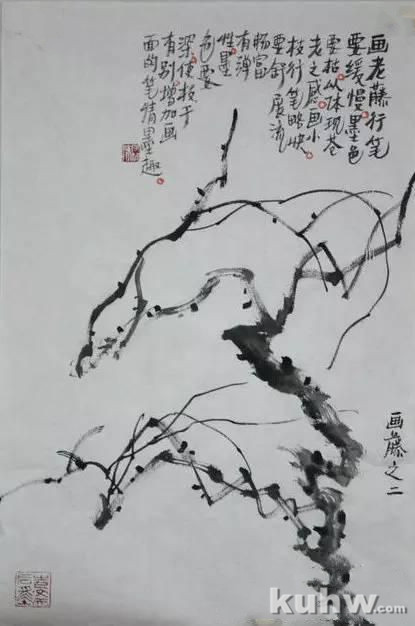 画老藤行笔
要缓慢墨色
要枯以体现苍
老之感画小
枝行笔略快
要舒展流
畅富
有弹
性墨
色要
深使枝干
有别增加画
面的笔情墨趣
画藤之二
kuhw.com